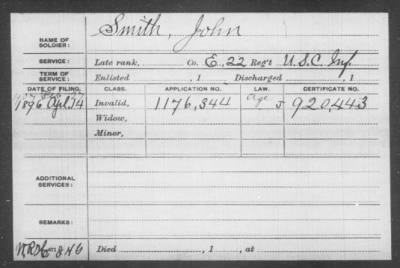 Smith, John
NAME OF
SOLDIER:
SERVICE: Late rank, Co. E, 22 Reg't U.S.C. Inf.
TERM OF
SERVICE: Enlisted , 1 Discharged , 1
DATE OF FILING. CLASS. APPLICATION NO. LAW. CERTIFICATE NO.
1896 Apl. 14 Invalid, 1176,344 Age J 920,443
Widow,
Minor,
ADDITIONAL
SERVICES:
REMARKS:
Died , 1 , at